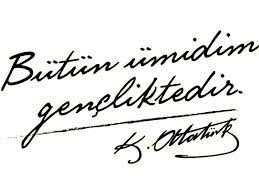 Bütün ümidim
gençliktedir.
K. Atatürk